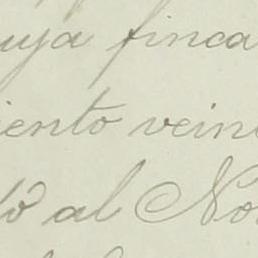 uya finca
iento vein
to al No